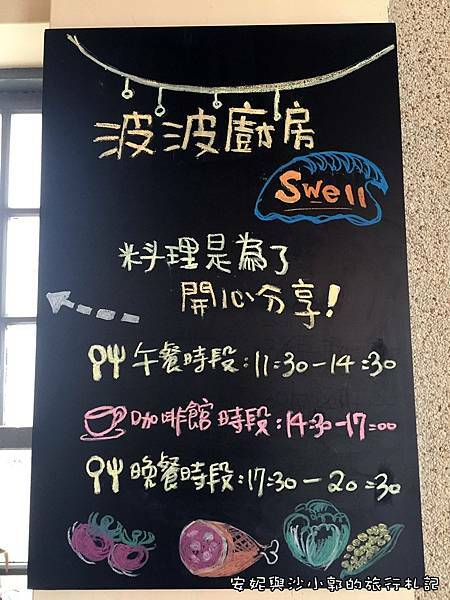 波波廚房
Swell
料理是為了
開心分享!
午餐時段:11:30-14:30
咖啡館時段:14:30-17:00
晚餐時段:17:30-20:30
安妮與沙小郭的旅行札記